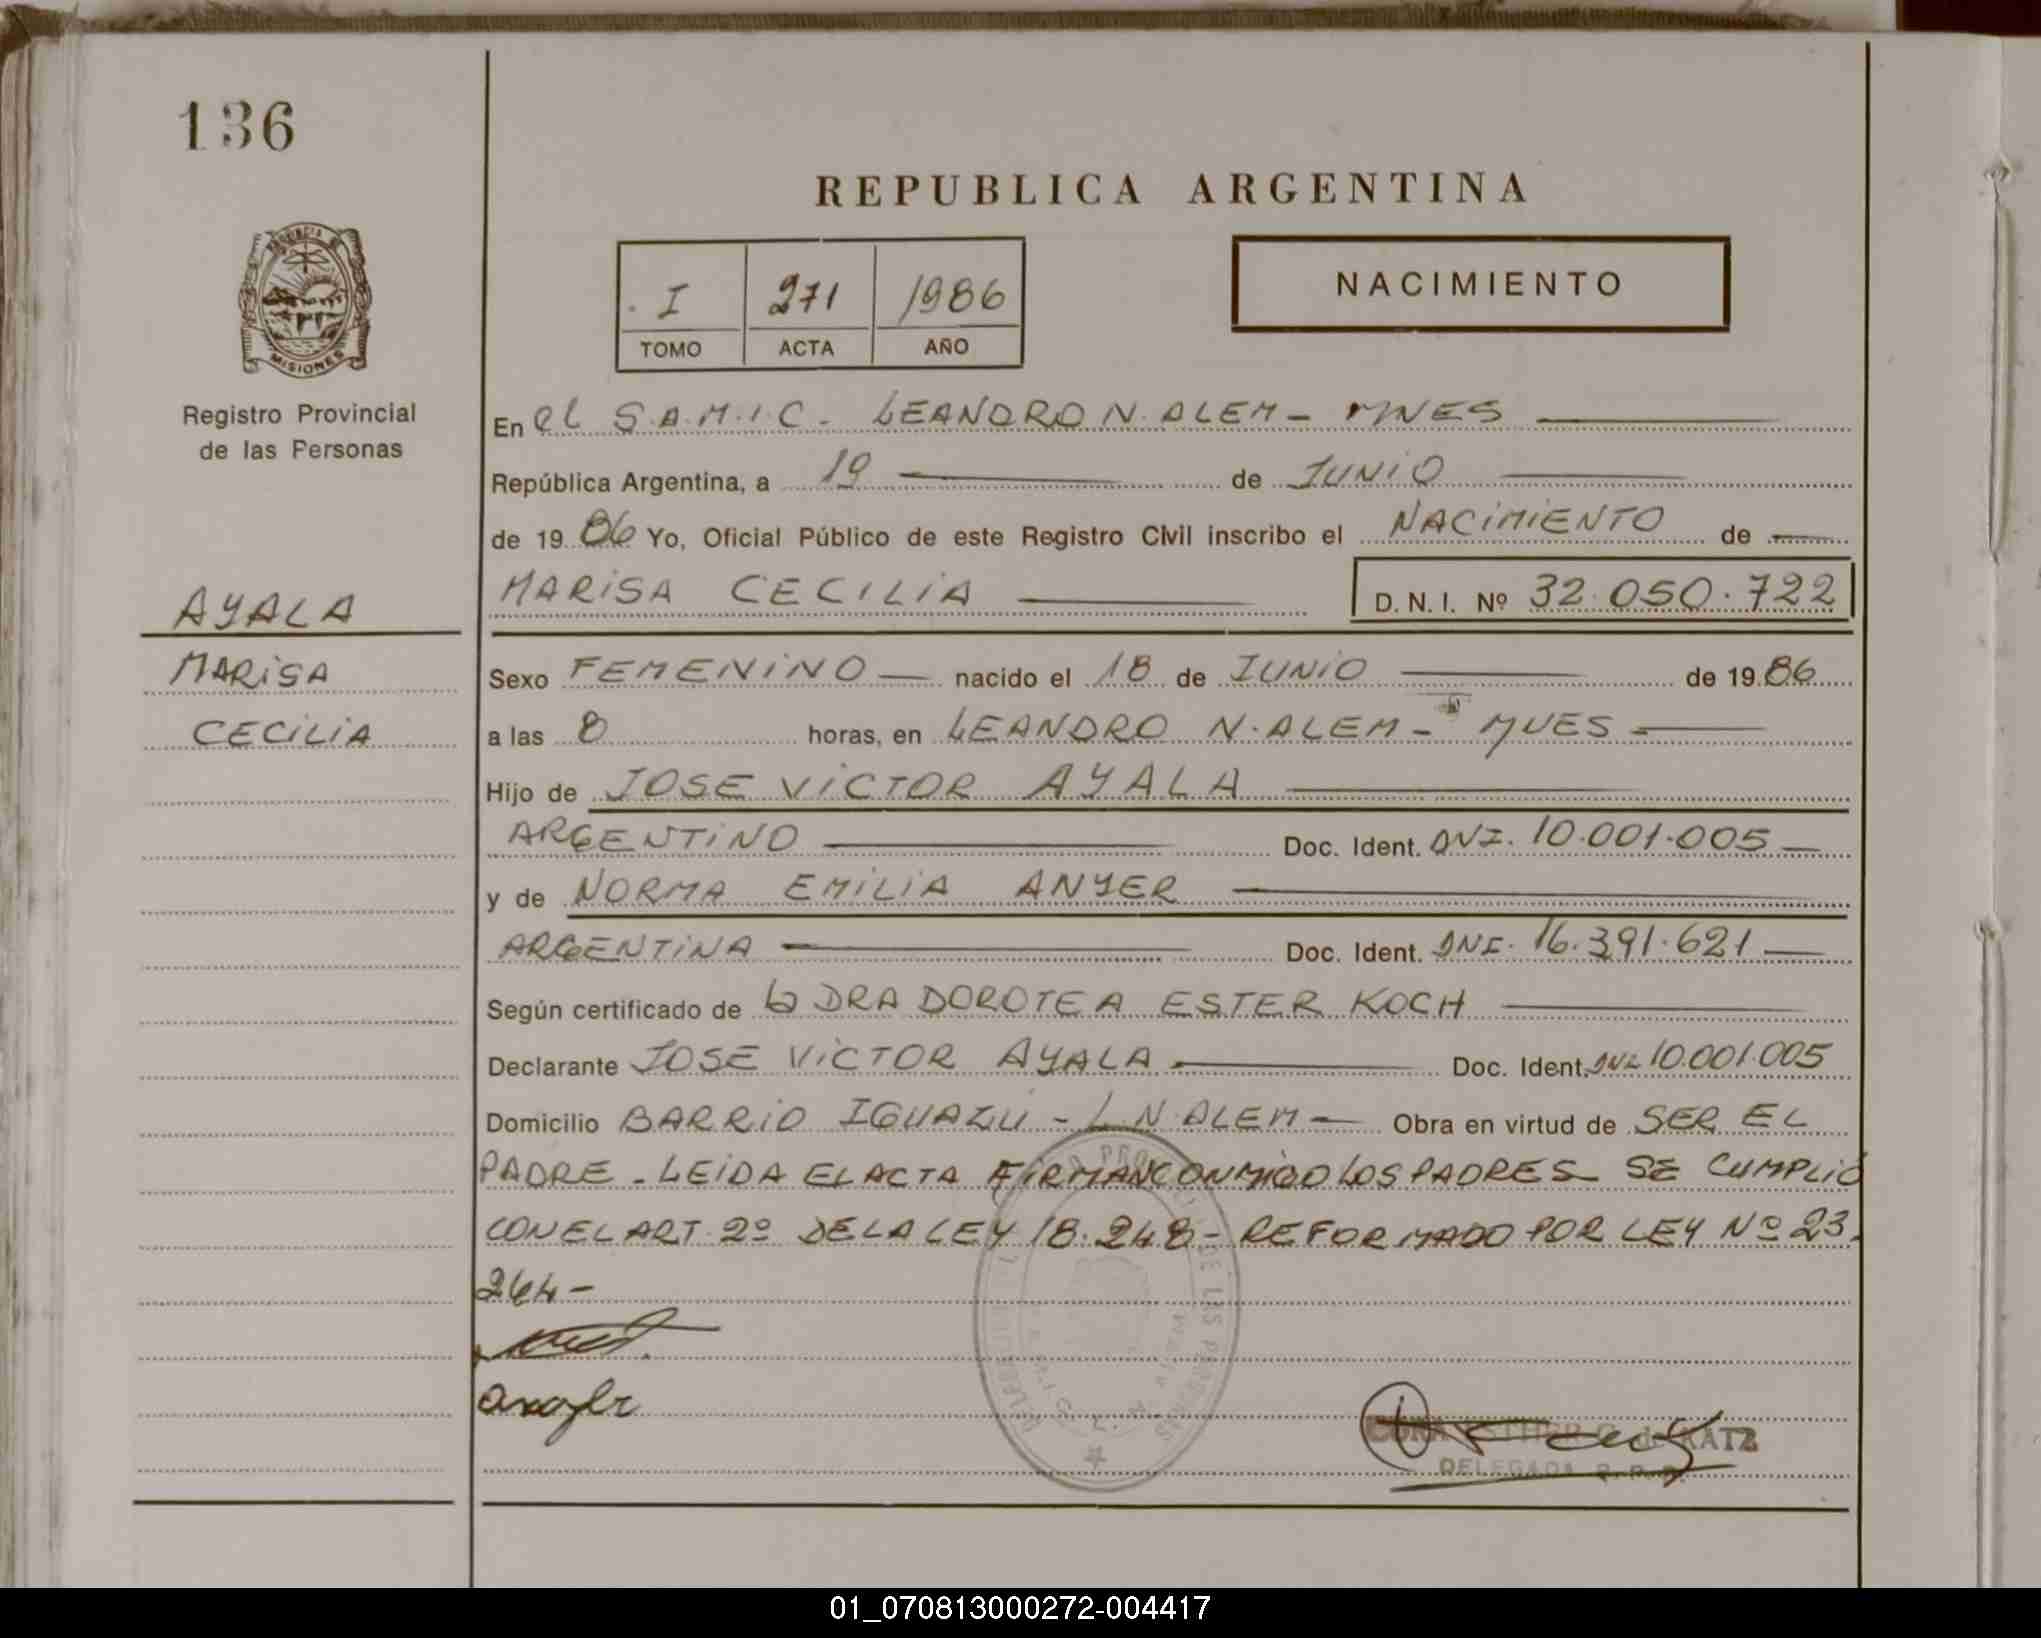 136
REPUBLICA ARGENTINA
NACIMIENTO
I 271 1986
TOMO ACTA AÑO
PROVINCIA DE MISIONES
Registro Provincial
de las Personas
En el S.A.M.I.C. - LEANDRO N. ALEM - MNES
República Argentina, a 19 de JUNIO
de 1986 Yo, Oficial Público de este Registro Civil inscribo el NACIMIENTO de
MARISA CECILIA D. N. I. Nº 32.050.722
AYALA
MARISA
CECILIA
Sexo FEMENINO nacido el 18 de JUNIO de 1986
a las 8 horas, en LEANDRO N. ALEM - MNES
Hijo de JOSE VICTOR AYALA
ARGENTINO Doc. Ident. DNI. 10.001.005
y de NORMA EMILIA ANYER
ARGENTINA Doc. Ident. DNI. 16.391.621
Según certificado de la DRA DOROTEA ESTER KOCH
Declarante JOSE VICTOR AYALA Doc. Ident. DNI 10.001.005
Domicilio BARRIO IGUAZU - L N. ALEM - Obra en virtud de SER EL
PADRE - LEIDA EL ACTA FIRMAN CONMIGO LOS PADRES - SE CUMPLIO
CON EL ART. 2º DE LA LEY 18.248 - REFORMADO POR LEY Nº 23.
264 -
KATZ
DELEGADA R. P. P.
01_070813000272-004417